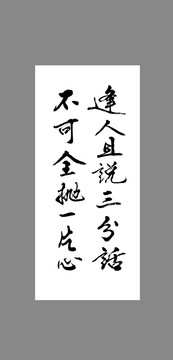 逢人且説三分話
不可全抛一片心